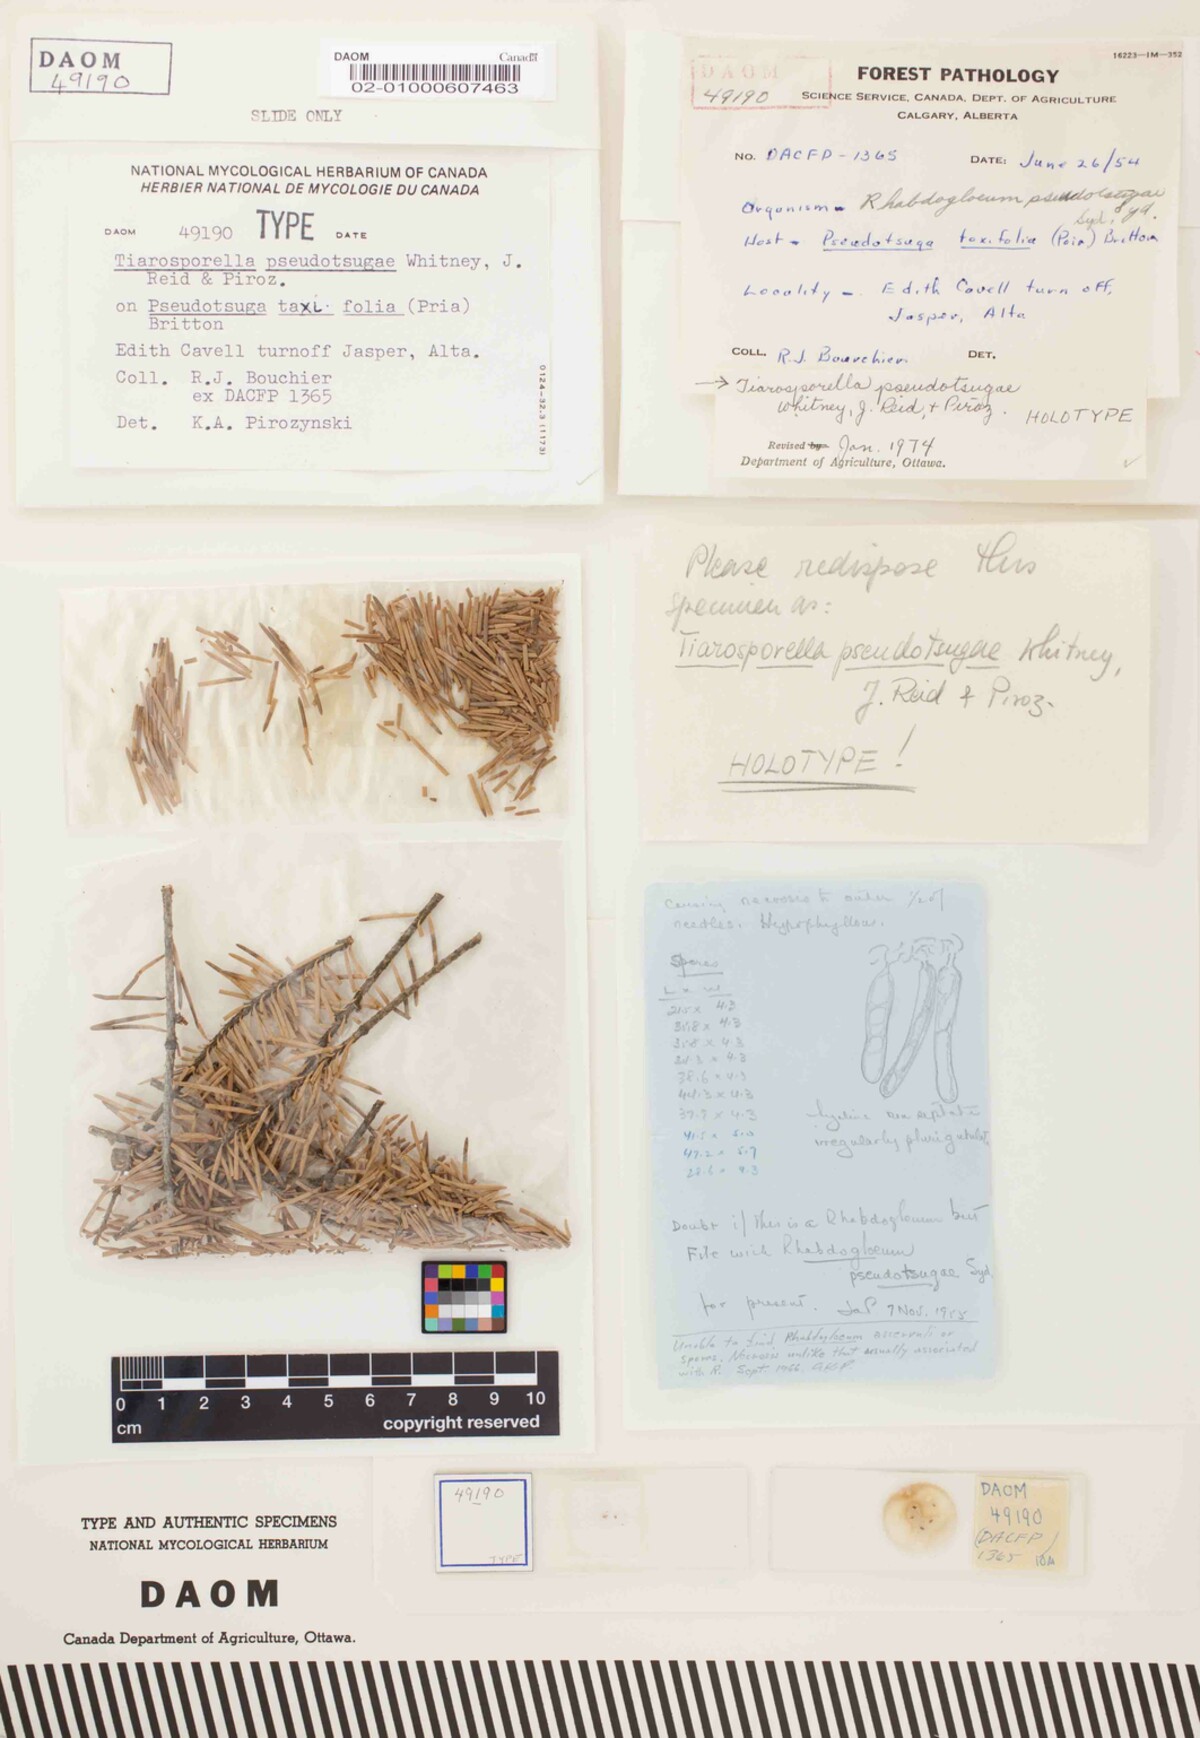 DAOM
49190
DAOM Canada
02-01000607463
SLIDE ONLY
NATIONAL MYCOLOGICAL HERBARIUM OF CANADA
HERBIER NATIONAL DE MYCOLOGIE DU CANADA
DAOM 49190 TYPE DATE
Tiarosporella pseudotsugae Whitney, J.
Reid & Piroz.
on Pseudotsuga taxi folia (Pria)
Britton
Edith Cavell turnoff Jasper, Alta.
Coll. R.J. Bouchier
ex DACFP 1365
Det. K.A. Pirozynski
0124-32.3 (1173)
16223—1M—352
DAOM
49190
FOREST PATHOLOGY
SCIENCE SERVICE, CANADA, DEPT. OF AGRICULTURE
CALGARY, ALBERTA
NO. DACFP - 1365 DATE: June 26/54
Organism - Rhabdogloeum pseudotsugae
Syd.
Host - Pseudotsuga taxifolia (Poir) Britton
Locality - Edith Cavell turn off,
Jasper, Alta
COLL. R.J. Bourchier DET.
→ Tiarosporella pseudotsugae
Whitney, J. Reid, + Piroz. HOLOTYPE
Revised by Jan. 1974
Department of Agriculture, Ottawa.
Please redispose this
specimen as:
Tiarosporella pseudotsugae Whitney,
J. Reid & Piroz.
HOLOTYPE!
Causing necrosis to outer 1/2 of
needles. Hypophyllous.
Spores
L x W
31.8 x 4.3
31.8 x 4.3
38.6 x 4.3
44.3 x 4.3
41.5 x 5.0
47.2 x 5.7
28.6 x 4.3
hyaline non septate
irregularly pluriguttulate
Doubt if this is a Rhabdogloeum but
File with Rhabdogloeum
pseudotsugae Syd.
for present. 7 Nov. 1955
Unable to find Rhabdogloeum acervuli or
spores. Necrosis unlike that usually associated
with R. Sept. 1966.
0 1 2 3 4 5 6 7 8 9 10
cm copyright reserved
49190
TYPE
DAOM
49190
(DACFP
1365)
TYPE AND AUTHENTIC SPECIMENS
NATIONAL MYCOLOGICAL HERBARIUM
DAOM
Canada Department of Agriculture, Ottawa.